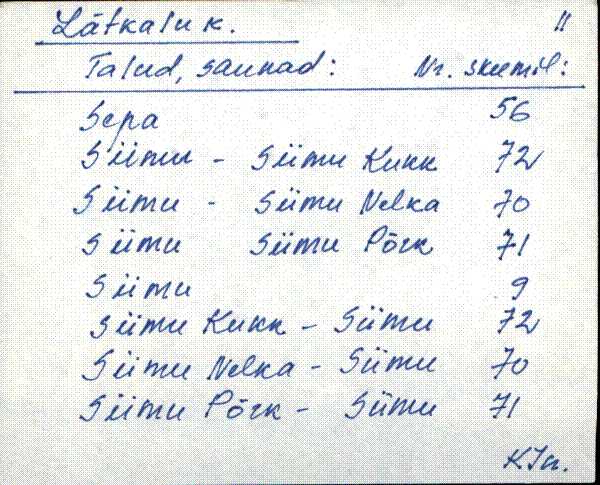 Lätkalu k. 11
Talud, saunad: Nr. skeemil:
Sepa 56
Siimu - Siimu Kukk 72
Siimu - Siimu Nelka 70
Siimu Siimu Põrk 71
Siimu 9
Siimu Kukk - Siimu 72
Siimu Nelka - Siimu 70
Siimu Põrk - Siimu 71